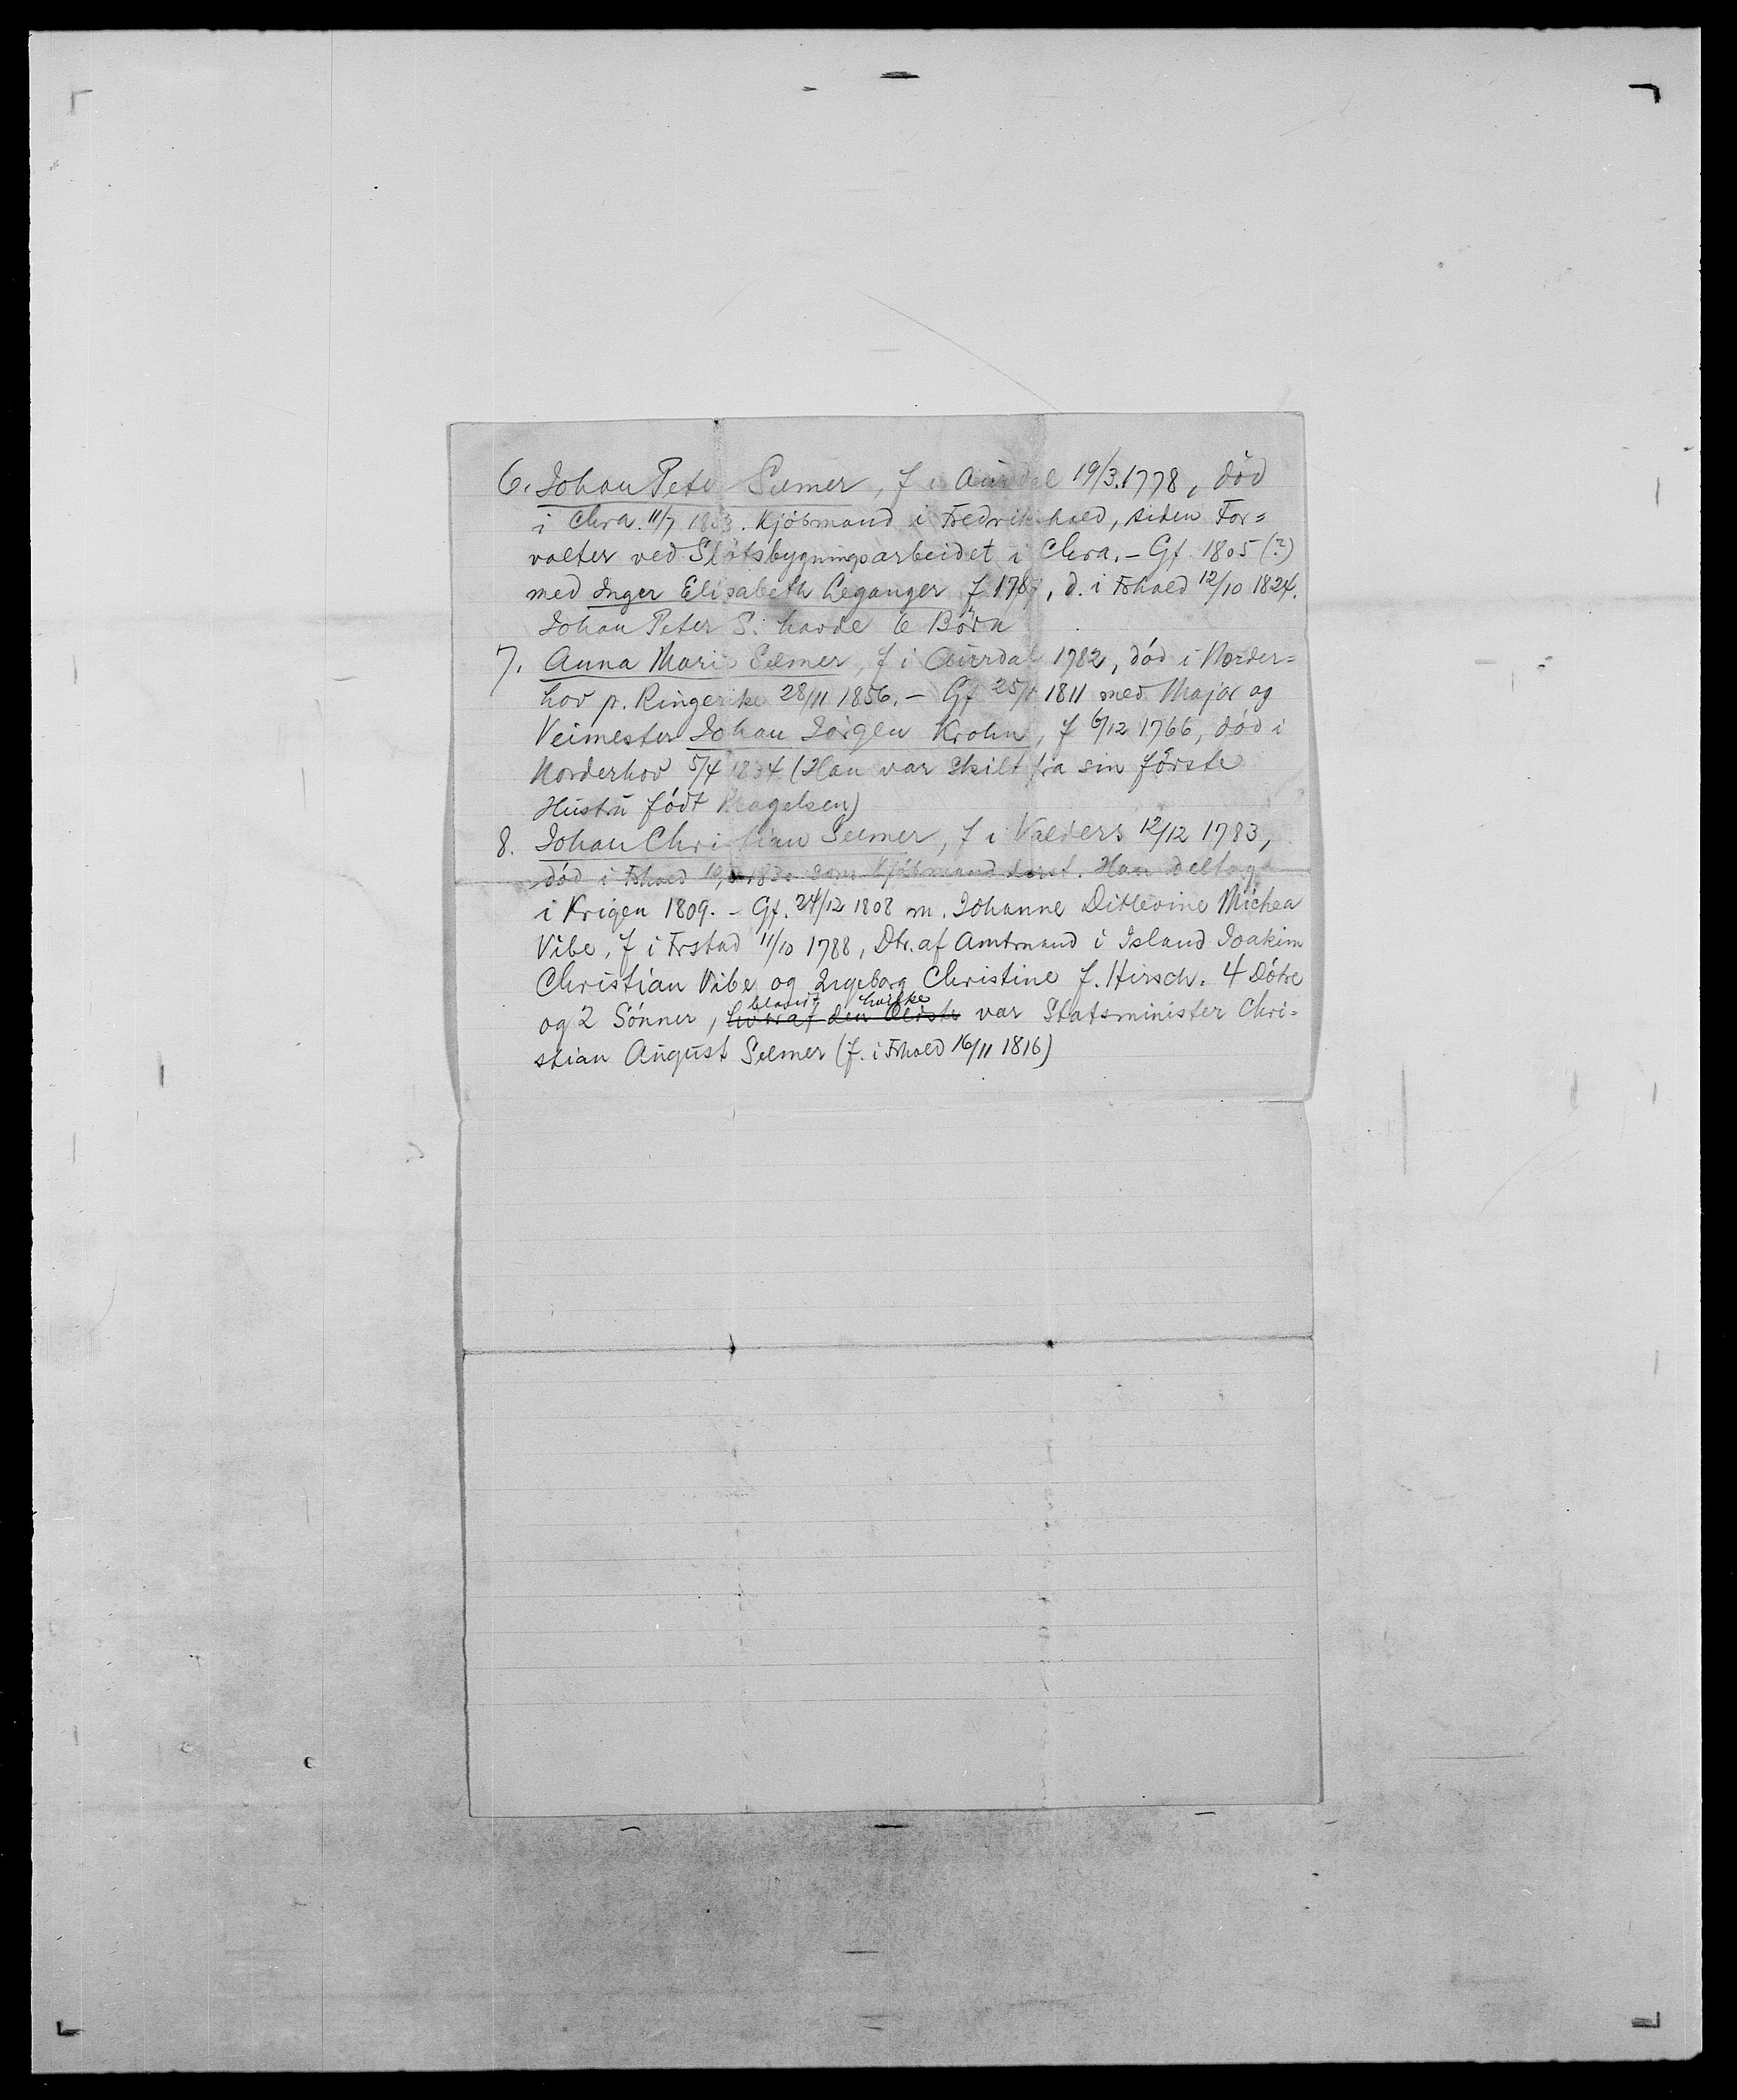 6. Johan Peter Selmer, f i Aurdal 19/3.1778, död
i Chra. 11/7 . Kjöbmand i Fredrikshald, siden For=
valter ved Slotsbygningsarbeidet i Chra. – Gf. 1805 (?)
med Inger Elisabeth Leganger f. 1787, d. i Fshald 12/10 1824.
Johan Peter S. havde 6 Börn
7. Anna Marie Selmer, f i Aurdal 1782, död i Norder=
hov p. Ringerike 28/11 1856. – Gf 1811 med Major og
Veimester Johan Jörgen Krohn, f 6/12 1766, död i
Norderhov 5/4 1834 (Han var skilt fra sin förste
Hustru födt Kragelsen)
8. Johan Christian Selmer, f i Valders 12/12 1783,
död i Fshald 1830 som Kjöbmand derst. Han deltog
i Krigen 1809. – Gf. 24/12 1808 m. Johanne Ditlevine Michea
Vibe, f i Frstad 11/10 1788, Dtr. af Amtmand i Island Joakim
Christian Vibe og Ingeborg Christine f. Hirsch. 4 Dötre
blandt hvilke
og 2 Sönner, hvoraf den Ældste var Statsminister Chri=
stian August Selmer (f. i Fhald 16/11 1816)